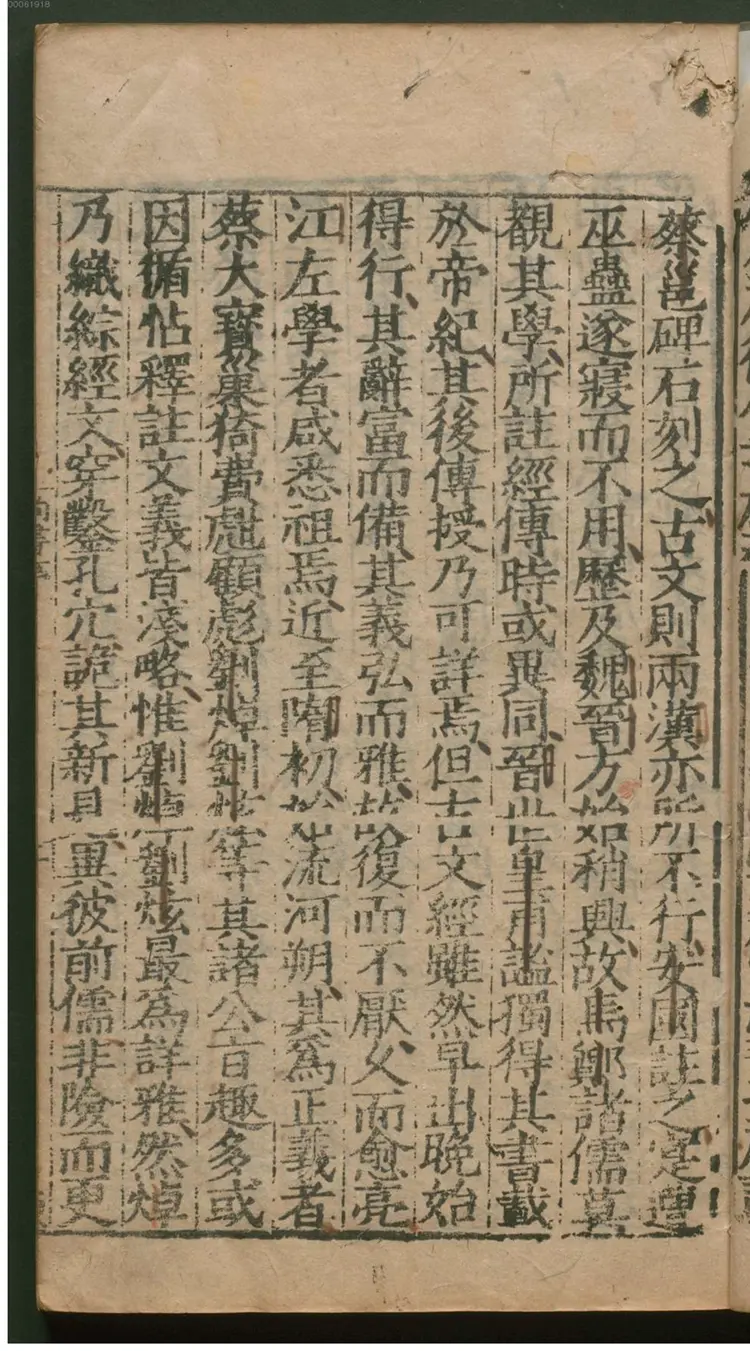 00061918
蔡邕碑石刻之古文則兩漢亦所不行、安國註之寔遭
巫蠱遂寢而不用、歷及魏晉方始稍興、故馬鄭諸儒莫
覩其學、所註經傳時或異同、晉世皇甫謐獨得其書載
於帝紀、其後傳授乃可詳焉、但古文經雖然早出晚始
得行、其辭富而備、其義弘而雅、故復而不厭久而愈亮
江左學者咸悉祖焉、近至隋初始流河朔、其爲正義者
蔡大寶巢猗費甝顧彪劉焯劉炫等其諸公旨趣多或
因循帖釋註文義皆淺略、惟劉焯劉炫最爲詳雅、然焯
乃織綜經文、穿鑿孔穴詭其新見異彼前儒、非險而更